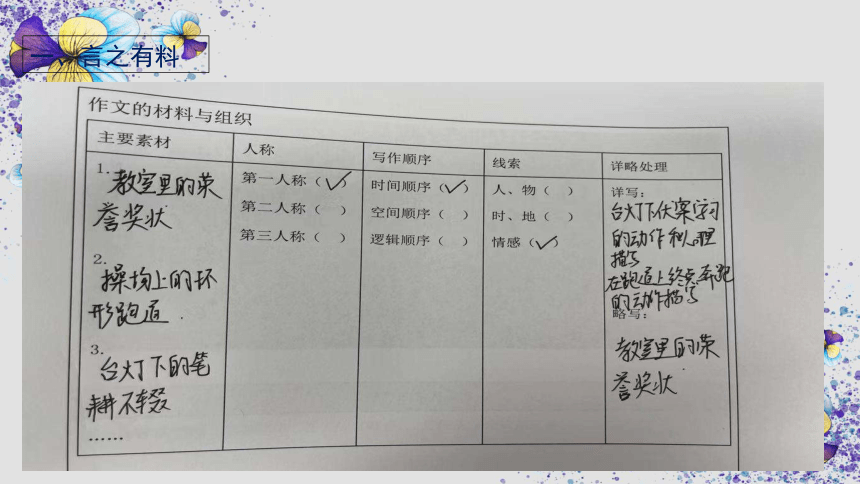 一、言之有料
作文的材料与组织
主要素材
人称
写作顺序
线索
详略处理
1.
教室里的荣
誉奖状
2.
操场上的环
形跑道.
3.
台灯下的笔
耕不辍
......
第一人称（✓）
第二人称（ ）
第三人称（ ）
时间顺序（✓）
空间顺序（ ）
逻辑顺序（ ）
人、物（ ）
时、地（ ）
情感（✓）
详写：
台灯下伏案学习
的动作和心理
描写
在跑道上终点奔跑
的动作描写
略写：
教室里的荣
誉奖状